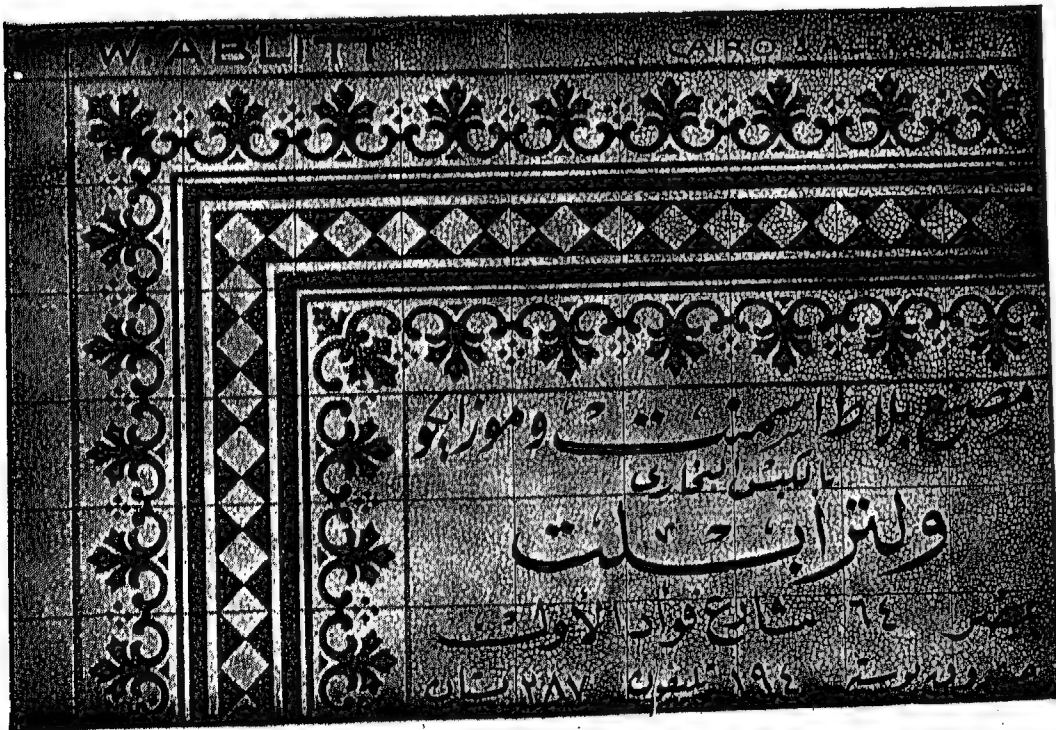 W. ABLITT CAIRO & ALEXANDRIA
مصنع بلاط اسمنت وموزايكو
بالكبس البخارى
ولتر ابلت
مصر ٦٤ شارع فؤاد الأول
١٩٤ تليفون ٢٨٧ بستان